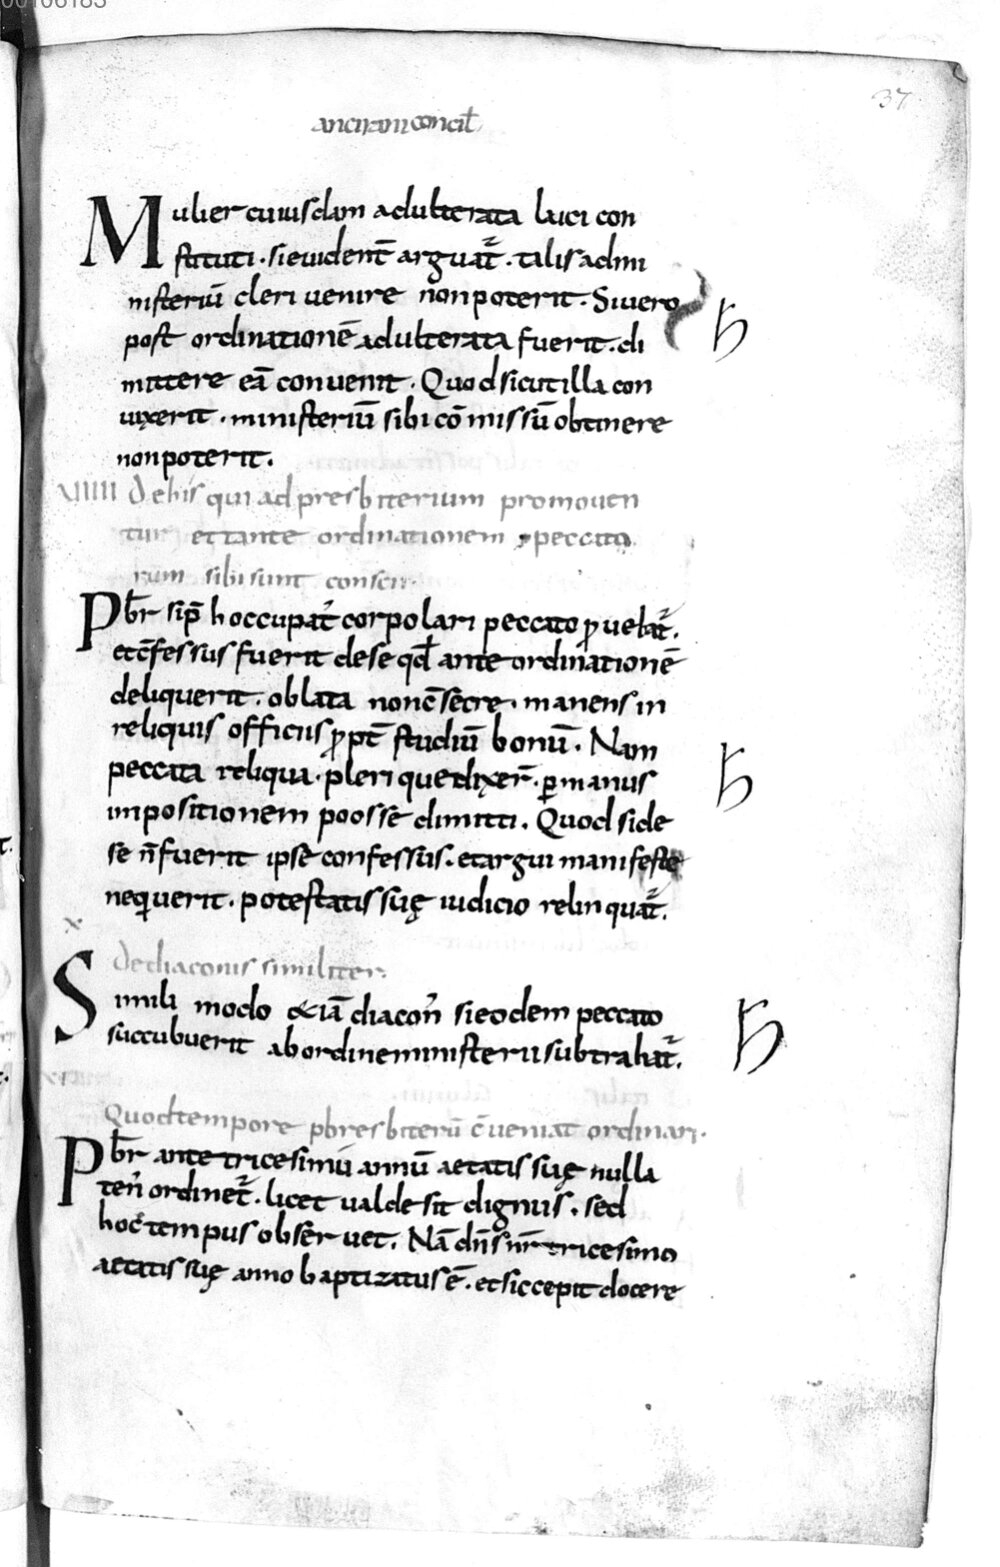 00106183
37
ancirani concił
Mulier cuiusdam adulterata laici con
stituti · si euident̄ arguat̄ · talis ad mi
nisteriū cleri uenire non poterit · Si uero
post ordinationē adulterata fuerit · di
mittere eā conuenit · Quod si cut illa con
uixerit · ministerium sibi cō missū obtinere
non poterit ·
VIIII De his qui ad presbiterium promouen
tur et tante ordinationem peccato
rum sibi sunt conscii ·
Pbr̄ si p̄ hoccupat̄ corpolari peccato ꝓuehat̄ ·
et c̄fessus fuerit de se qd̄ ante ordinationē
deliquerit · oblata non c̄secre · manens in
reliquis officiis ꝓpt̄ studiū bonū · Nam
peccata reliqua · pleri que dixer̄ · ꝑ manus
impositionem poosse dimitti · Quod si de
se n̄ fuerit ipse confessus · et argui manifeste
nequerit · potestatis suę iudicio relinquat̄ ·
x
De diaconis similiter ·
Simili modo &iā diacon̄ si eodem peccato
succubuerit ab ordine ministerii subtrahat̄ ·
XI
Quod tempore pbresbiterū c̄ueniat ordinari ·
Pbr̄ ante tricesimū annū aetatis suę nulla
ten̄ ordinet̄ · licet ualde sit dignus · sed
hoc tempus obseruet · Nā dn̄s nr̄ tricesimo
aetatis suę anno baptizatus ē · et sic cepit docere